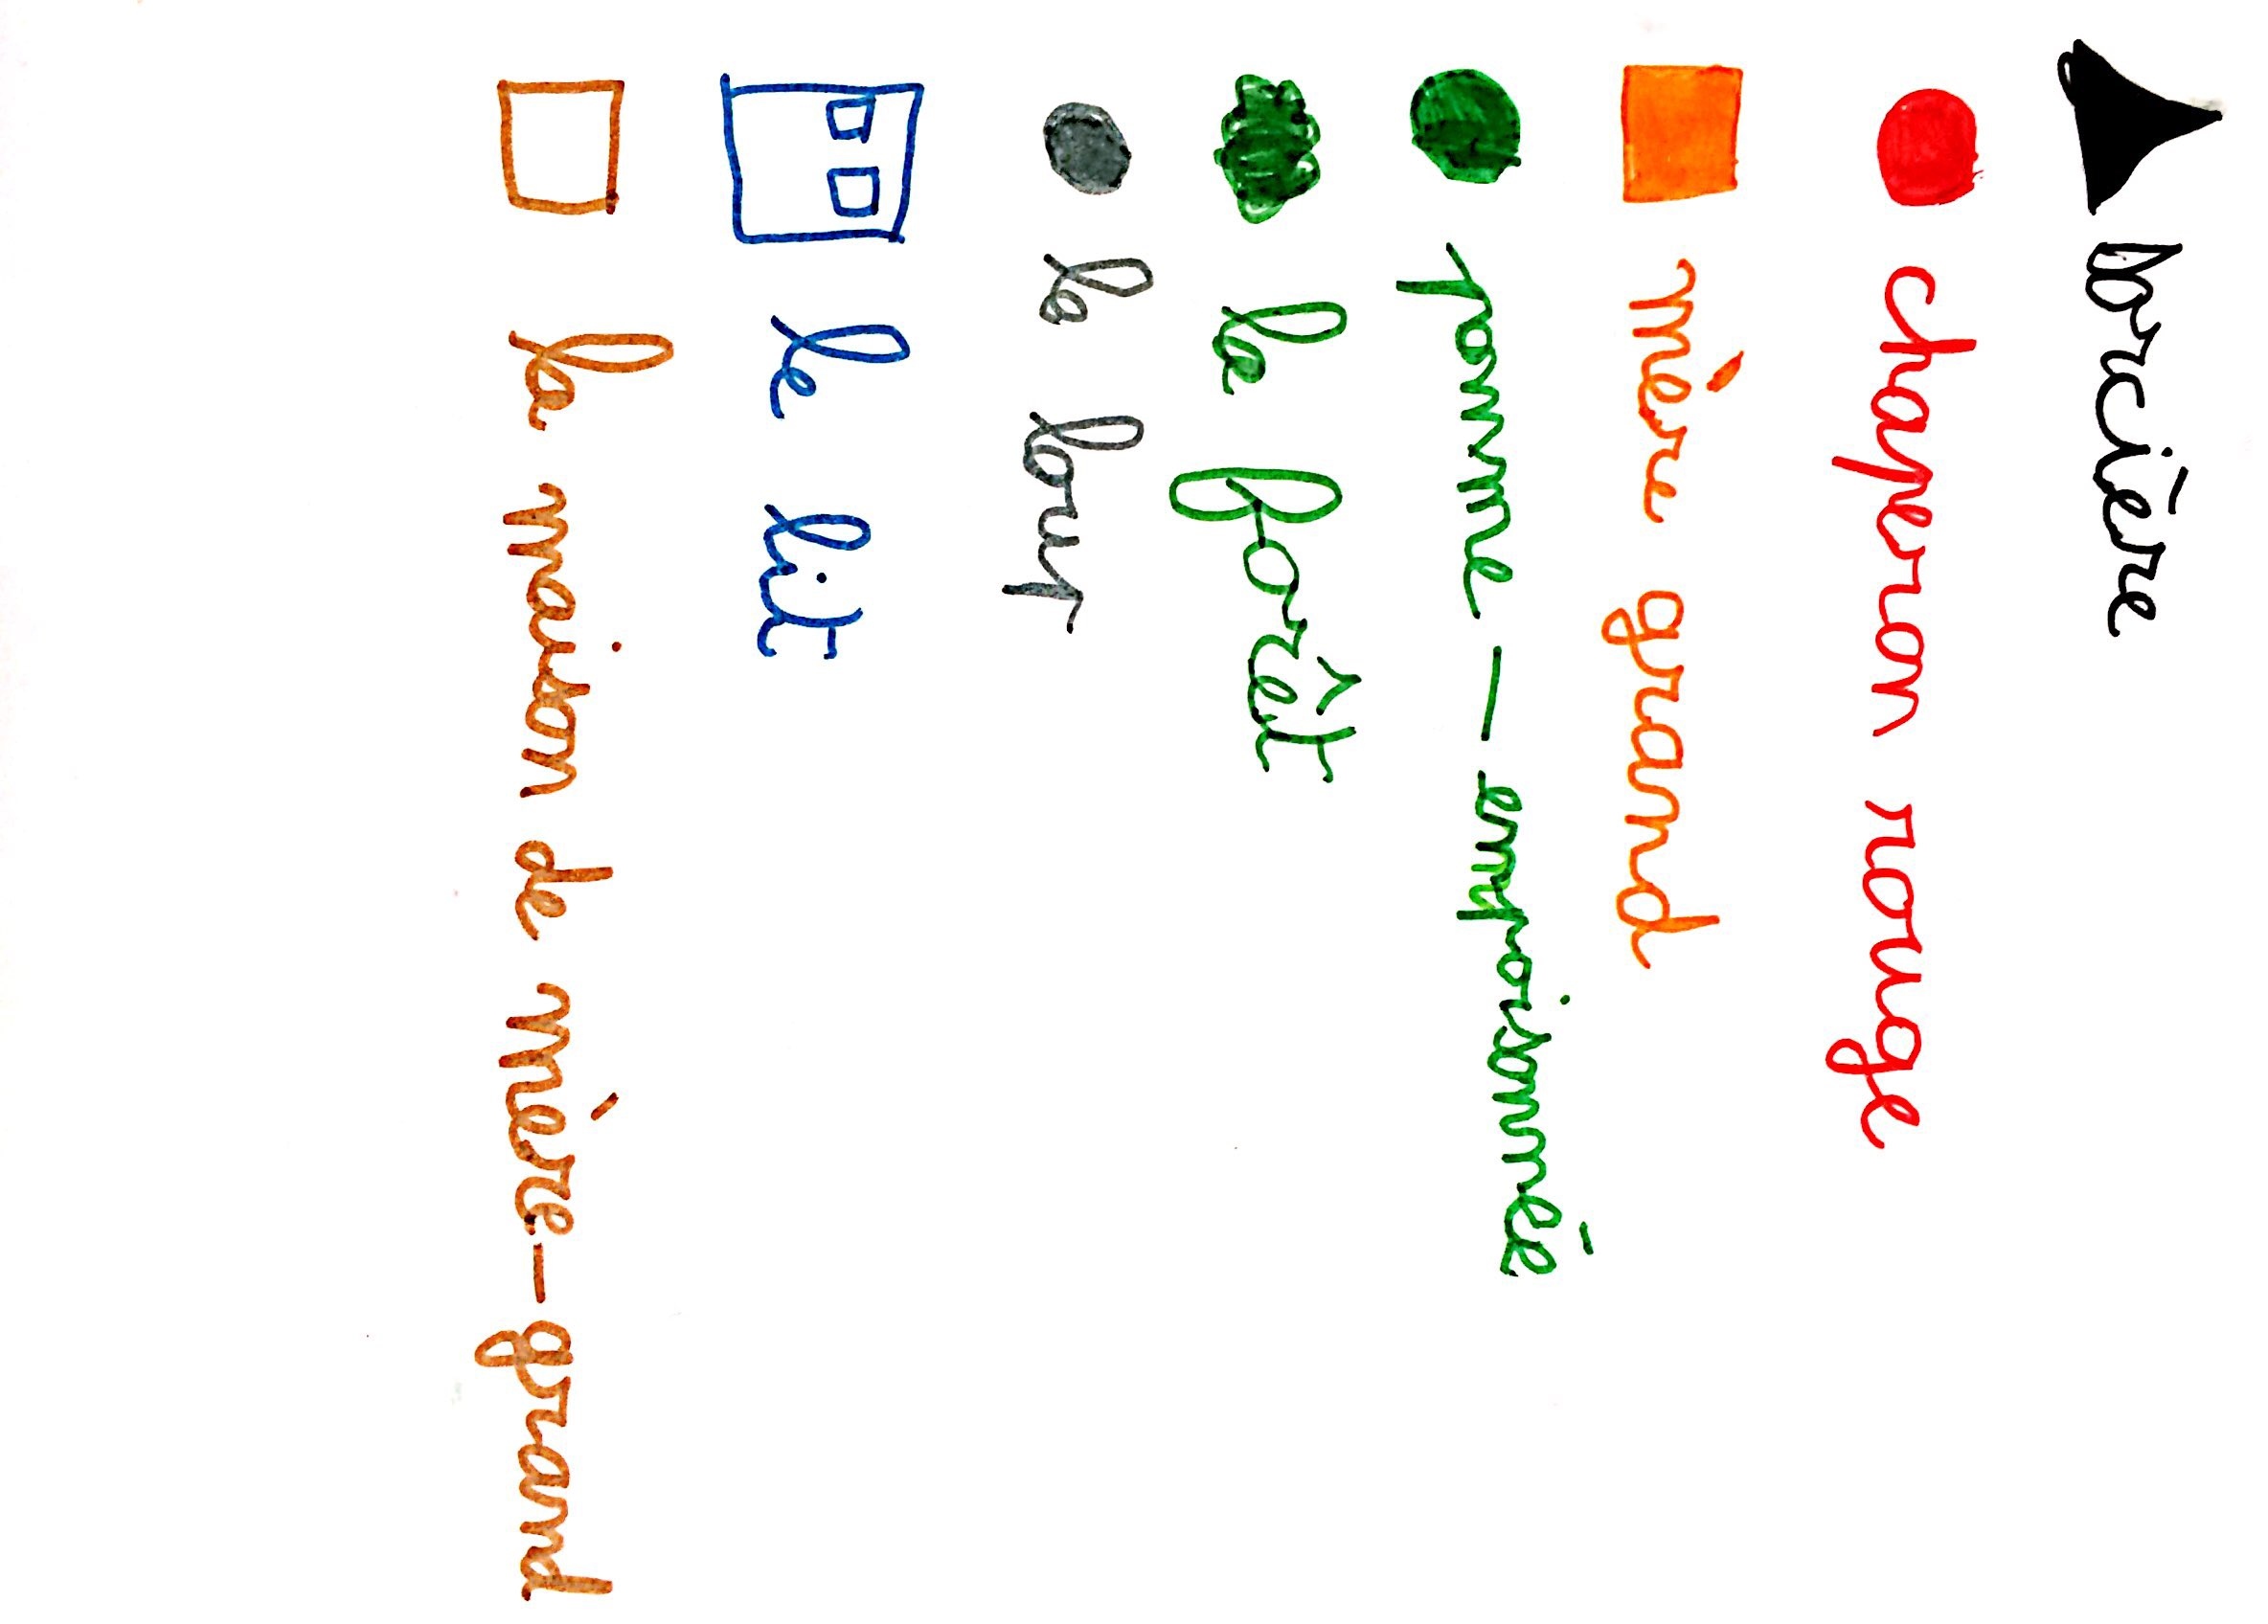 sorcière
chaperon rouge
mère grand
pomme - empoisonnée
la forêt
le loup
le lit
la maison de mère-grand